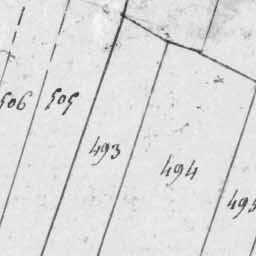 506
505
493
494